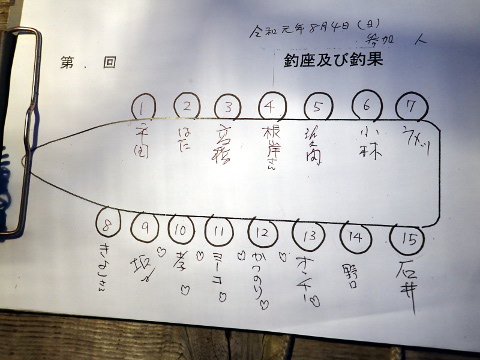 令和元年8月4日(日)
参加 人
第.回
釣座及び釣果
① ② ③ ④ ⑤ ⑥ ⑦
はた
高橋
根岸さん
小林
⑧ ⑨ ⑩ ⑪ ⑫ ⑬ ⑭ ⑮
孝♡
ミーコ♡
かつのり♡
オンチー♡
野口
石井